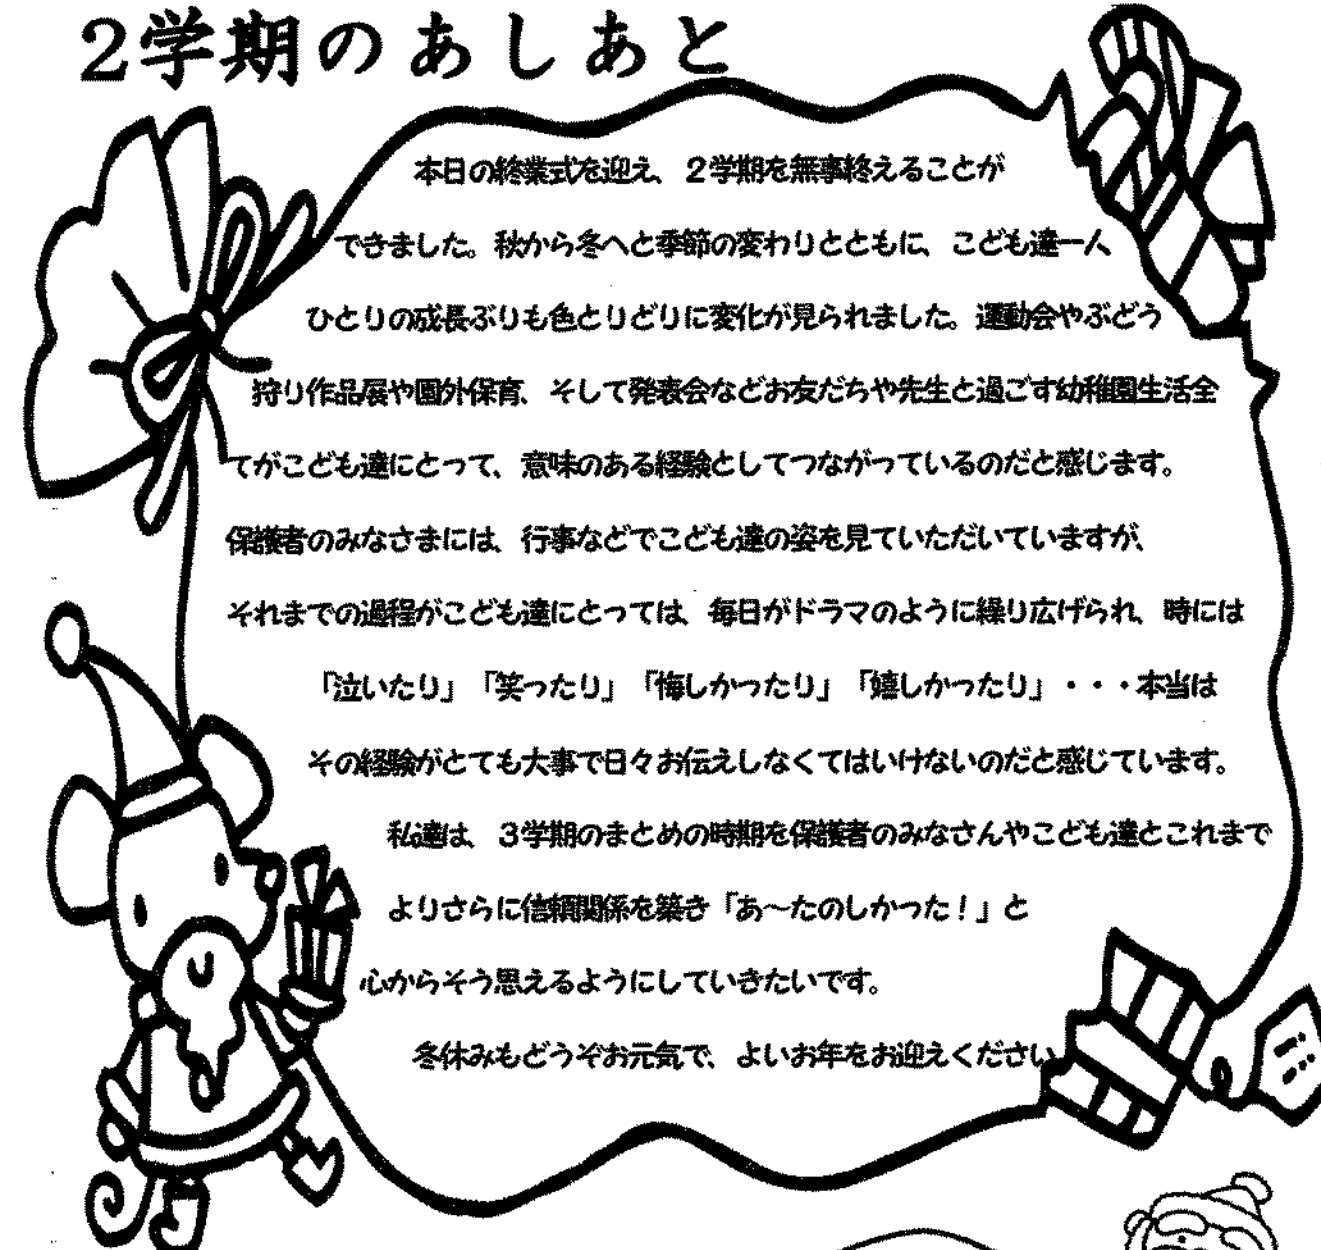 ２学期のあしあと
本日の終業式を迎え、２学期を無事終えることが
できました。秋から冬へと季節の変わりとともに、こども達一人
ひとりの成長ぶりも色とりどりに変化が見られました。運動会やぶどう
狩り作品展や園外保育、そして発表会などお友だちや先生と過ごす幼稚園生活全
てがこども達にとって、意味のある経験としてつながっているのだと感じます。
保護者のみなさまには、行事などでこども達の姿を見ていただいていますが、
それまでの過程がこども達にとっては、毎日がドラマのように繰り広げられ、時には
「泣いたり」「笑ったり」「悔しかったり」「嬉しかったり」・・・本当は
その経験がとても大事で日々お伝えしなくてはいけないのだと感じています。
私達は、３学期のまとめの時期を保護者のみなさんやこども達とこれまで
よりさらに信頼関係を築き「あ～たのしかった！」と
心からそう思えるようにしていきたいです。
冬休みもどうぞお元気で、よいお年をお迎えください